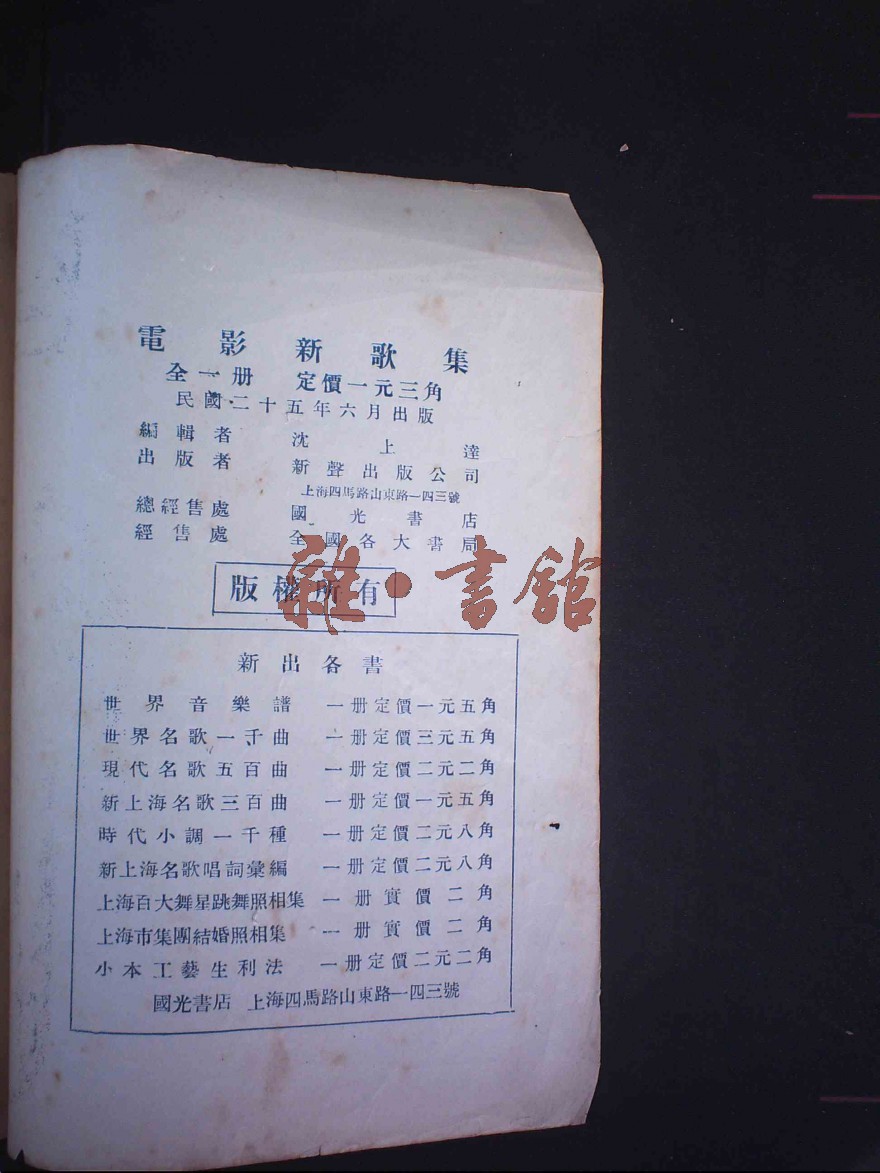 電影新歌集
全一册 定價一元三角
民國二十五年六月出版
編輯者 沈上達
出版者 新聲出版公司
上海四馬路山東路一四三號
總經售處 國光書店
經售處 全國各大書局
版權所有
雜·書舘
新出各書
世界音樂譜 一册定價一元五角
世界名歌一千曲 一册定價三元五角
現代名歌五百曲 一册定價二元二角
新上海名歌三百曲 一册定價一元五角
時代小調一千種 一册定價二元八角
新上海名歌唱詞彙編 一册定價二元八角
上海百大舞星跳舞照相集 一册實價二角
上海市集團結婚照相集 一册實價二角
小本工藝生利法 一册定價二元二角
國光書店 上海四馬路山東路一四三號